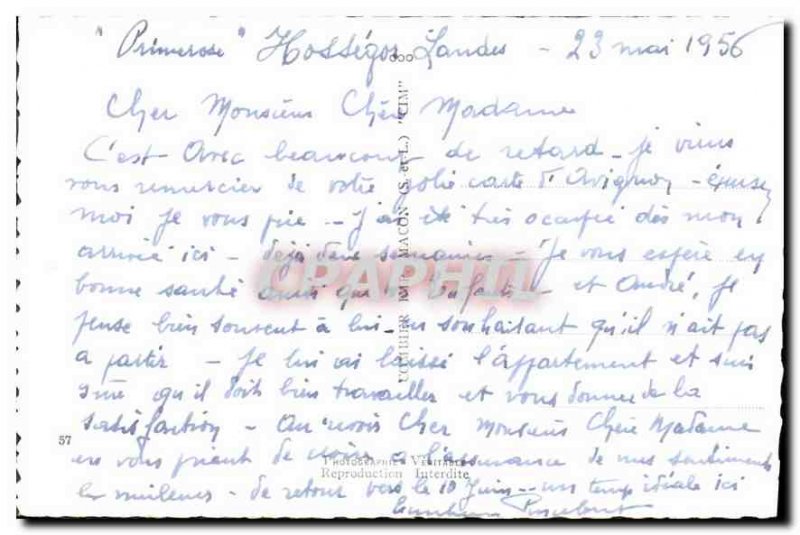 "Primerose" Hosségor Landes - 23 mai 1956
Cher Monsieur Chère Madame
C'est avec beaucoup de retard - je viens
vous remercier de votre jolie carte d'Avignon - excusez
moi je vous prie - J'ai été très occupée dès mon
arrivée ici - déjà deux semaines - Je vous espère en
bonne santé ainsi que et André, je
pense bien souvent à lui - en souhaitant qu'il n'ait pas
a partir - Je lui ai laissé l'appartement et suis
sûre qu'il doit bien travailler et vous donner de la
satisfaction - Au revoir Cher Monsieur Chère Madame
en vous priant de croire a l'assurance de mes sentiments
les meilleurs - de retour vers le 10 Juin - un temps idéale ici
COMBIER IMP. MACON (S. et L.) "CIM"
CPAPHIL
57
PHOTOGRAPHIE VÉRITABLE
Reproduction Interdite